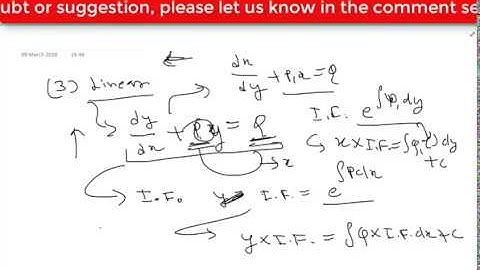 ubt or suggestion, please let us know in the comment se
09 March 2018
(3) Linear
dx/dy + P₁x = Q
dy/dx + Py = Q
I.F. e^∫P₁dy
x × I.F = ∫Q₁( ) dy + c
→ x
I.F. I.F. = e^∫Pdx
y × I.F. = ∫Q × I.F. dx + c